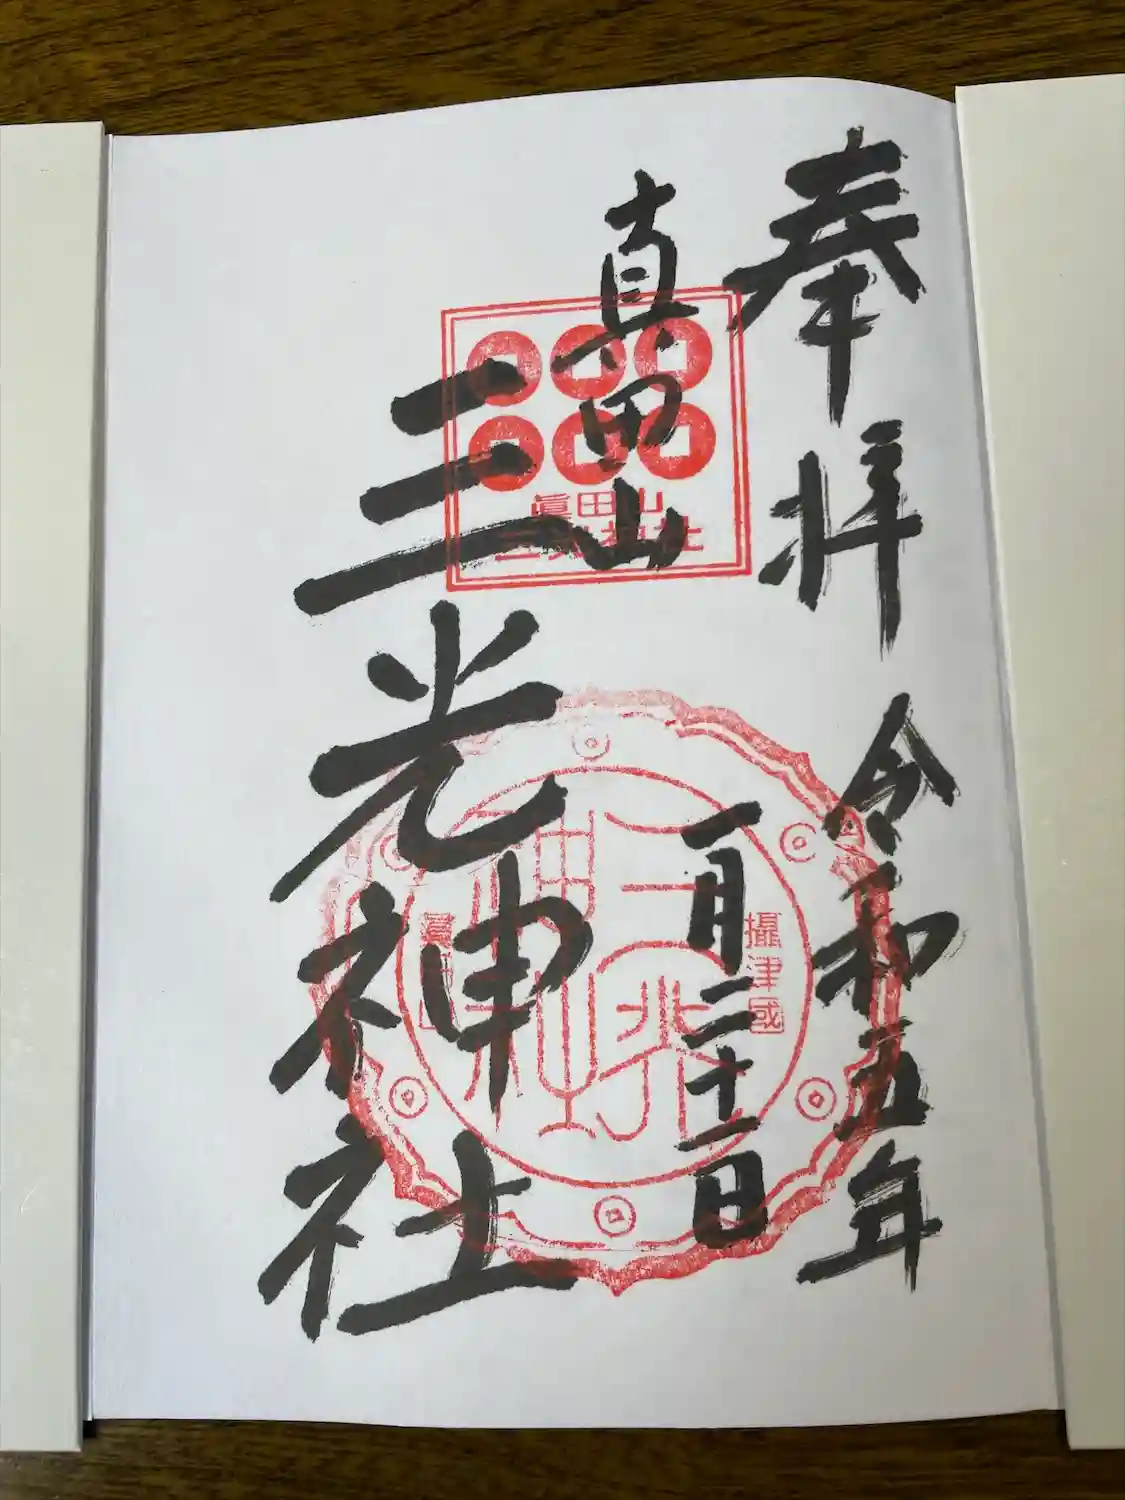 奉拝
令和五年
一月二十一日
真田山
三光神社
眞田山
三光神社
攝津國